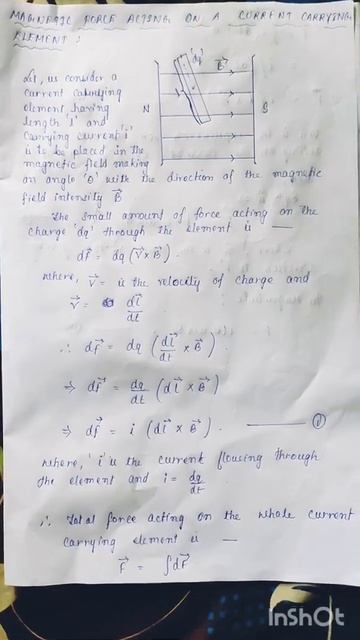 MAGNETIC FORCE ACTING ON A CURRENT CARRYING
ELEMENT :
Let, us consider a
current carrying
element, having
length 'l' and
carrying current 'i'
is to be placed in the
magnetic field making
an angle 'θ' with the direction of the magnetic
field intensity B⃗
'dq'
B⃗
N
S
The small amount of force acting on the
charge 'dq' through the element is —
dF⃗ = dq (V⃗ × B⃗).
where, V⃗ = is the velocity of charge and
V⃗ = dl⃗/dt
∴ dF⃗ = dq (dl⃗/dt × B⃗).
⇒ dF⃗ = dq/dt (dl⃗ × B⃗)
⇒ dF⃗ = i (dl⃗ × B⃗). —— ①
where, 'i' is the current flowing through
the element and i = dq/dt
∴ Total force acting on the whole current
carrying element is —
F⃗ = ∫dF⃗
InShOt